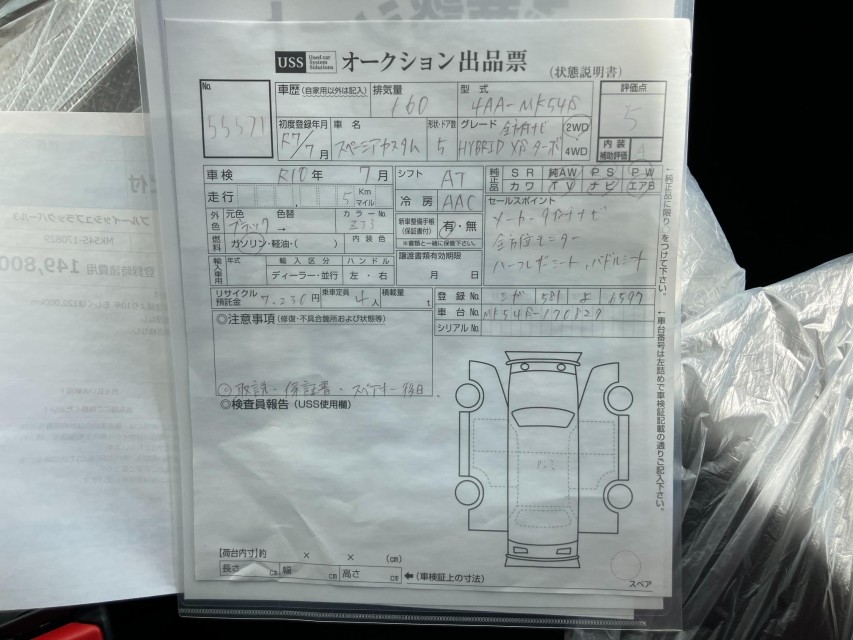 USS Used car System Solutions オークション出品票 (状態説明書)
No. 55571
車歴 (自家用以外は記入) 排気量 660 型式 4AA-MK54S 評価点 5
初度登録年月 R7/7月 車名 スペーシアカスタム 形状・ドア数 5 グレード 全方位ナビ HYBRID XSターボ 2WD 4WD 内装補助評価 A
車検 R10年 7月 シフト AT 純正品 SR 純AW PS PW
カワ TV ナビ エアB
走行 5 Km マイル 冷房 AAC セールスポイント
外色 元色 ブラック 色替 → カラーNo. ZJ3 新車整備手帳 (保証書付) 有・無 ※書類と一緒に保管下さい。 メーカー9インチナビ
燃料 ガソリン・軽油・( ) 内装色 全方位モニター
輸入車用 年式 輸入区分 ハンドル 譲渡書類有効期限 パドルシフト
ディーラー・並行 左・右 月 日
リサイクル預託金 7,230円 乗車定員 4人 積載量 t 登録No. 581 よ 6597
車台No. MK54S-170829
シリアルNo.
◎注意事項 (修復・不具合箇所および状態等)
取説・保証書・スペアキー後日
◎検査員報告 (USS使用欄)
【荷台内寸】約 × × (cm)
長さ cm 幅 cm 高さ cm ←(車検証上の寸法)
スペア
←純正品に限り○をつけて下さい。
←車台番号は左詰めで車検証記載の通りご記入下さい。
ブルーイッシュブラックパール3
MK54S-170829
登録時諸費用 149,800